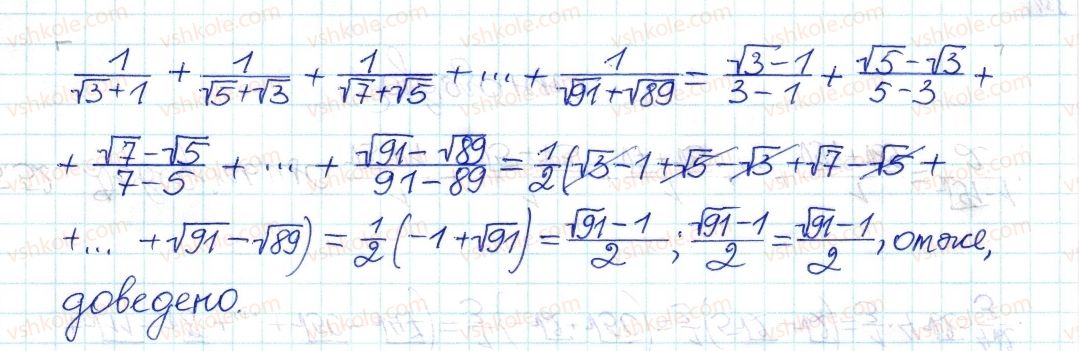 1/(√3+1) + 1/(√5+√3) + 1/(√7+√5) + ... + 1/(√91+√89) = (√3-1)/(3-1) + (√5-√3)/(5-3) +
+ (√7-√5)/(7-5) + ... + (√91-√89)/(91-89) = 1/2 (√3-1+√5-√3+√7-√5+
+... +√91-√89) = 1/2 (-1+√91) = (√91-1)/2 ; (√91-1)/2 = (√91-1)/2, отже,
доведено.